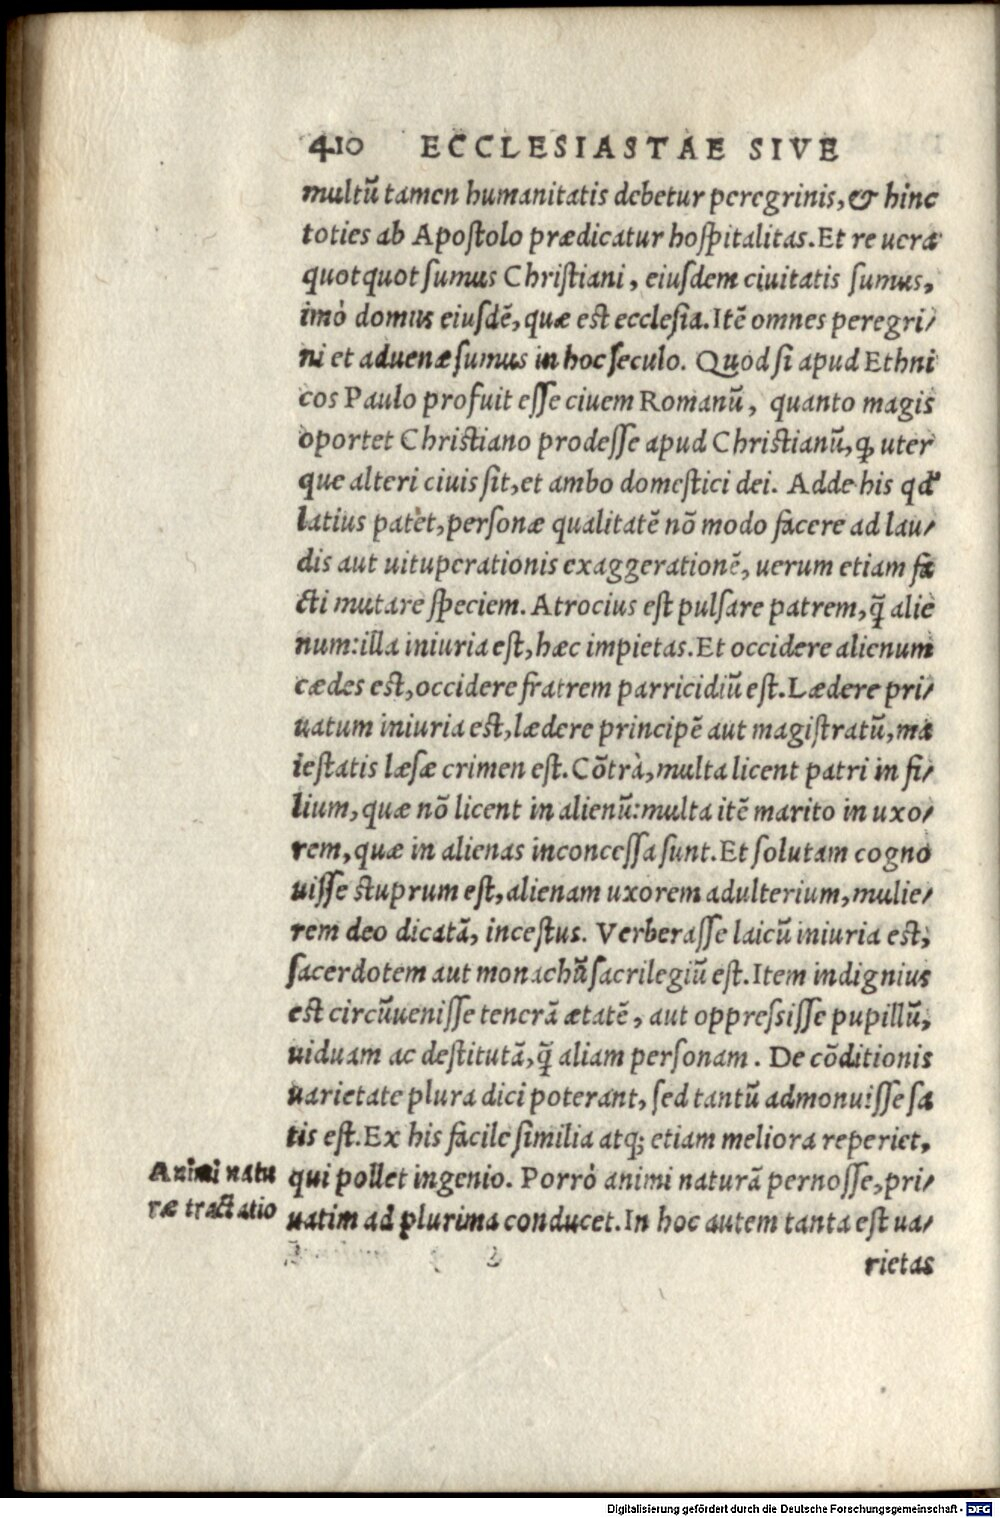 410 ECCLESIASTAE SIVE
multū tamen humanitatis debetur peregrinis, & hinc
toties ab Apostolo prædicatur hospitalitas. Et re uera
quotquot sumus Christiani, eiusdem ciuitatis sumus,
imò domus eiusdē, quæ est ecclesia. Itē omnes peregri/
ni et aduenæ sumus in hoc seculo. Quod si apud Ethni
cos Paulo profuit esse ciuem Romanū, quanto magis
oportet Christiano prodesse apud Christianū, ꝙ uter
que alteri ciuis sit, et ambo domestici dei. Adde his qđ
latius patet, personæ qualitatē nō modo facere ad lau/
dis aut uituperationis exaggerationē, uerum etiam fa
cti mutare speciem. Atrocius est pulsare patrem, q̄ alie
num: illa iniuria est, hæc impietas. Et occidere alienum
cædes est, occidere fratrem parricidiū est. Lædere pri/
uatum iniuria est, lædere principē aut magistratū, ma
iestatis læsæ crimen est. Cōtrà, multa licent patri in fi/
lium, quæ nō licent in alienū: multa itē marito in uxo/
rem, quæ in alienas inconcessa sunt. Et solutam cogno
uisse stuprum est, alienam uxorem adulterium, mulie/
rem deo dicatā, incestus. Verberasse laicū iniuria est,
sacerdotem aut monachū sacrilegiū est. Item indignius
est circūuenisse tenerā ætatē, aut oppressisse pupillū,
uiduam ac destitutā, q̄ aliam personam. De cōditionis
uarietate plura dici poterant, sed tantū admonuisse sa
tis est. Ex his facile similia atq; etiam meliora reperiet,
qui pollet ingenio. Porrò animi naturā pernosse, pri/
uatim ad plurima conducet. In hoc autem tanta est ua/
rietas
Animi natu
ræ tractatio
Digitalisierung gefördert durch die Deutsche Forschungsgemeinschaft - DFG